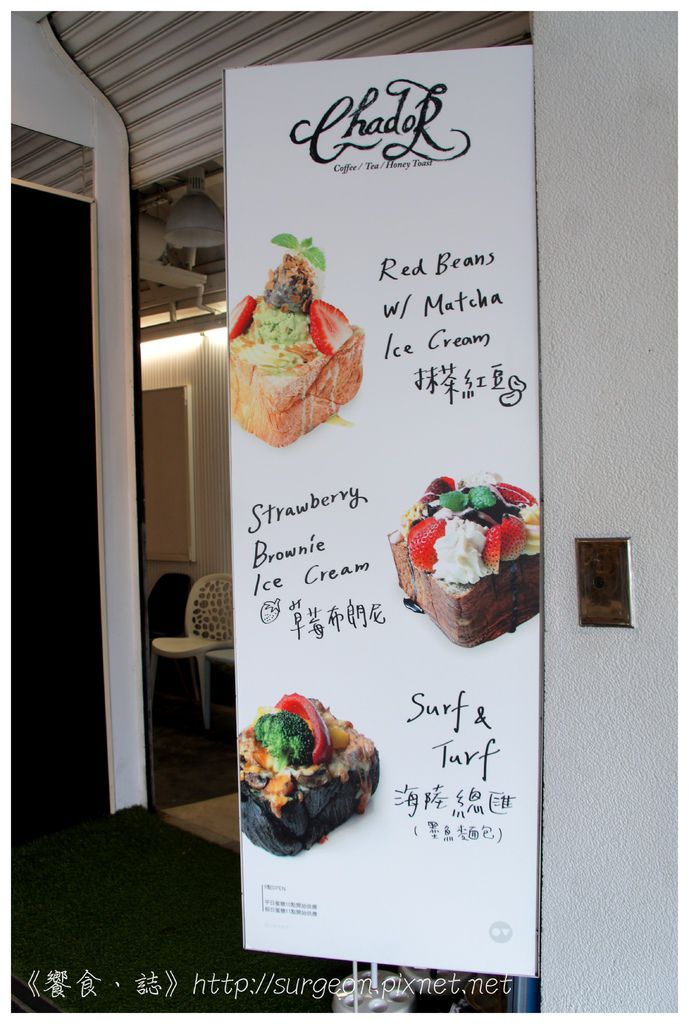 ChadoR
Coffee / Tea / Honey Toast
Red Beans
W/ Matcha
Ice Cream
抹茶紅豆
Strawberry
Brownie
Ice Cream
草莓布朗尼
Surf &
Turf
海陸總匯
(墨魚麵包)
9點OPEN
平日蜜糖10點開始供應
假日蜜糖11點開始供應
《饗食、誌》http://surgeon.pixnet.net